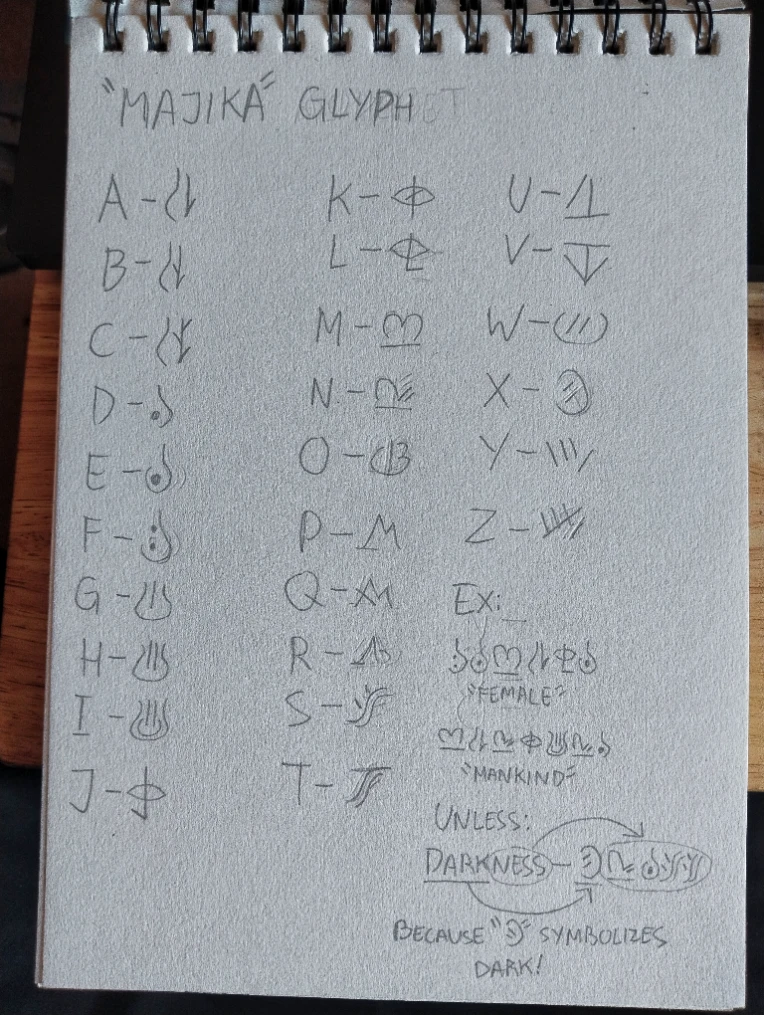 "MAJIKA" GLYPH
A -
B -
C -
D -
E -
F -
G -
H -
I -
J -
K -
L -
M -
N -
O -
P -
Q -
R -
S -
T -
U -
V -
W -
X -
Y -
Z -
EX:
"FEMALE"
"MANKIND"
UNLESS:
DARKNESS -
BECAUSE " " SYMBOLIZES
DARK!